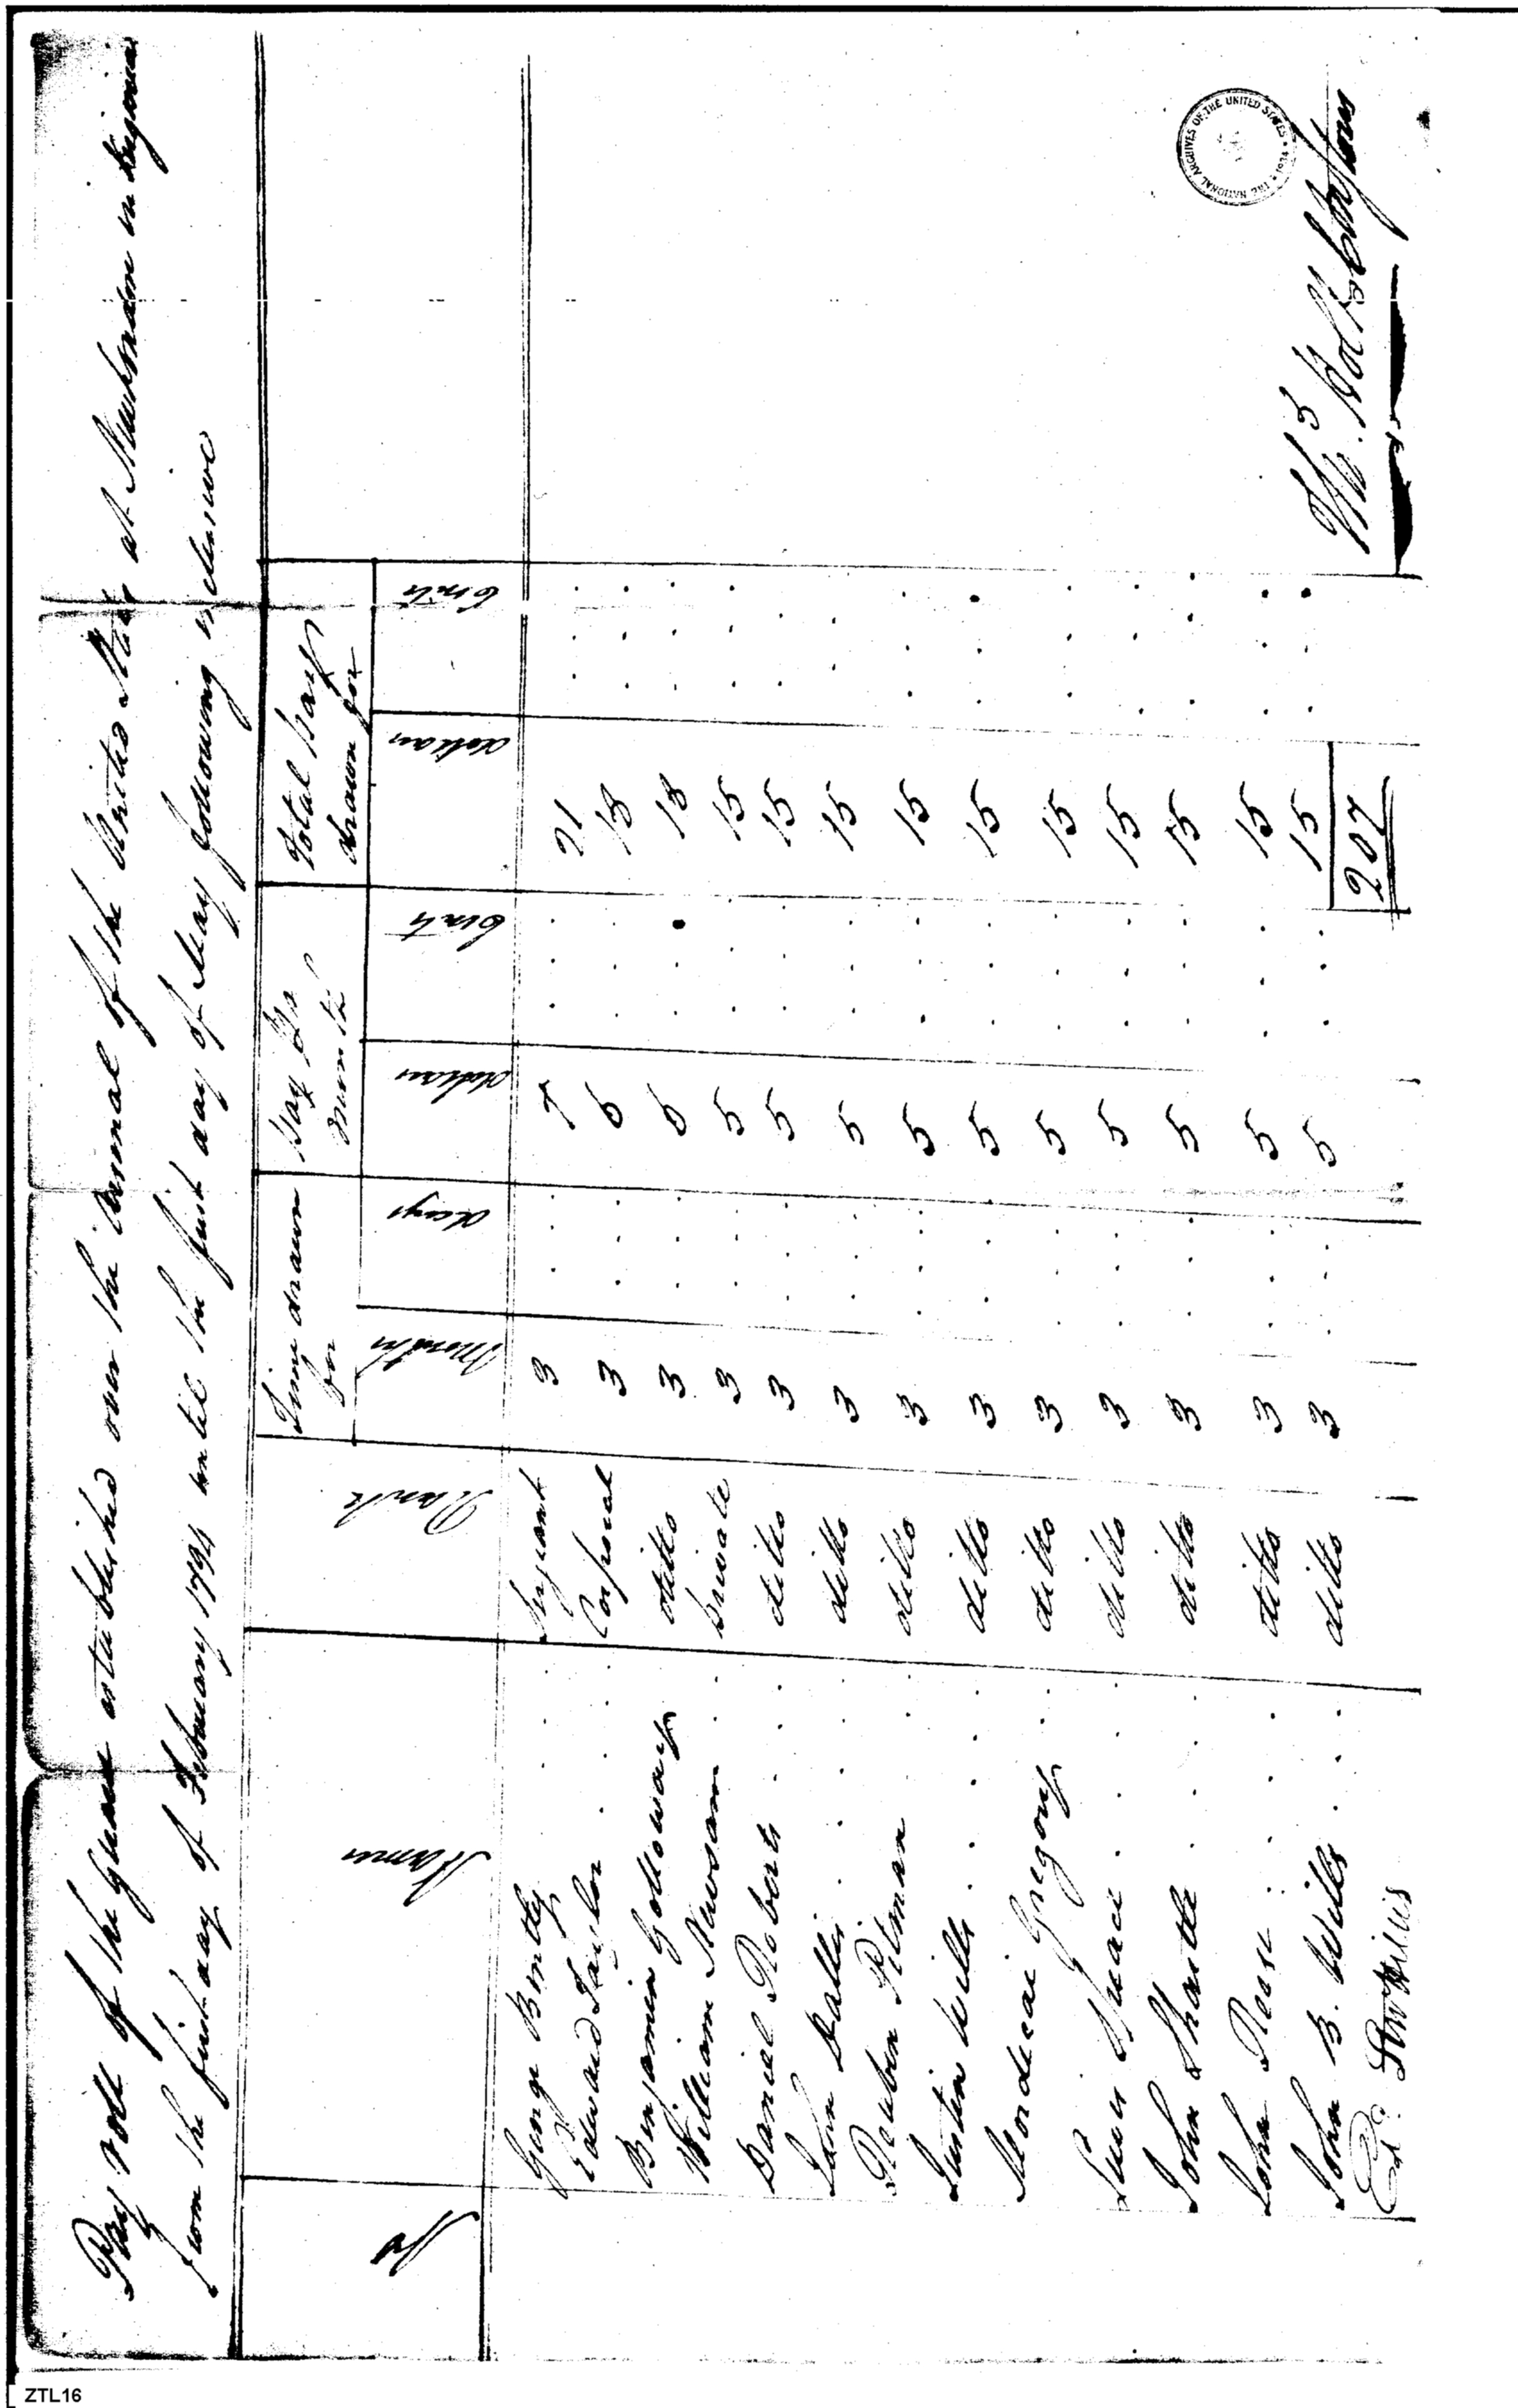 Pay Roll of the Guard established over the Arsenal of the United States at Newlondon in Virginia
from the first day of February 1794 until the first day of May following inclusive
No Names Rank Time drawn for Pay Pr Month Total Pay drawn for
Months days dollars Cents dollars Cents
George Bently Serjeant 3 7 21
Edward Taylor Corporal 3 6 18
Benjamin Golloway ditto 3 6 18
William Newsom private 3 5 15
Daniel Roberts ditto 3 5 15
John ditto 3 5 15
Reuben Pitman ditto 3 5 15
Austin Wills ditto 3 5 15
Mordecai Gregory ditto 3 5 15
ditto 3 5 15
John ditto 3 5 15
John ditto 3 5 15
John B. Wills ditto 3 5 15
207
THE NATIONAL ARCHIVES OF THE UNITED STATES 1934
ZTL16